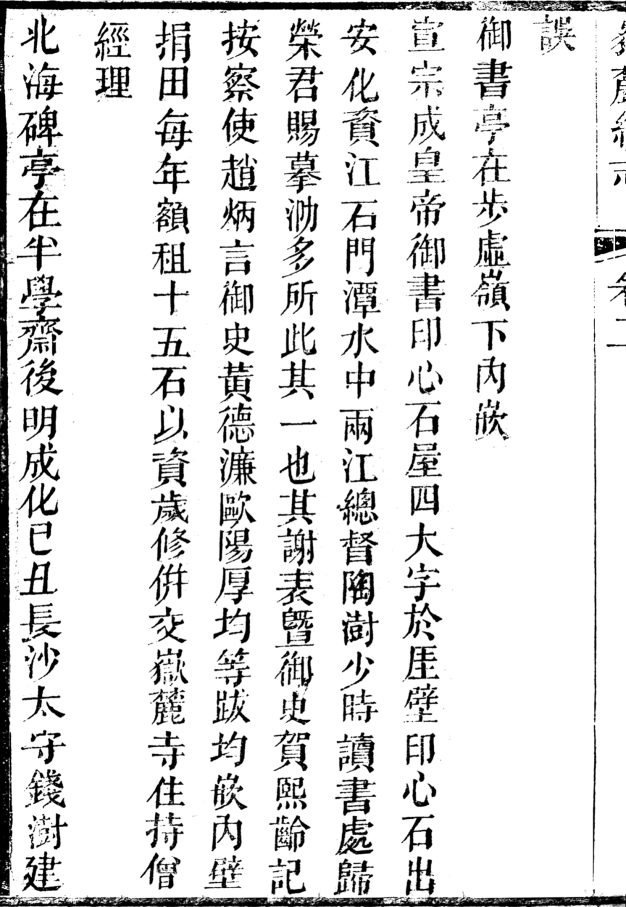 嶽麓續志
卷二
誤
御書亭在步虛嶺下內嵌
宣宗成皇帝御書印心石屋四大字於厓壁印心石出
安化資江石門潭水中兩江總督陶澍少時讀書處歸
榮君賜摹泐多所此其一也其謝表暨御史賀熙齡記
按察使趙炳言御史黃德濂歐陽厚均等跋均嵌內壁
捐田每年額租十五石以資歲修倂交嶽麓寺住持僧
經理
北海碑亭在半學齋後明成化己丑長沙太守錢澍建